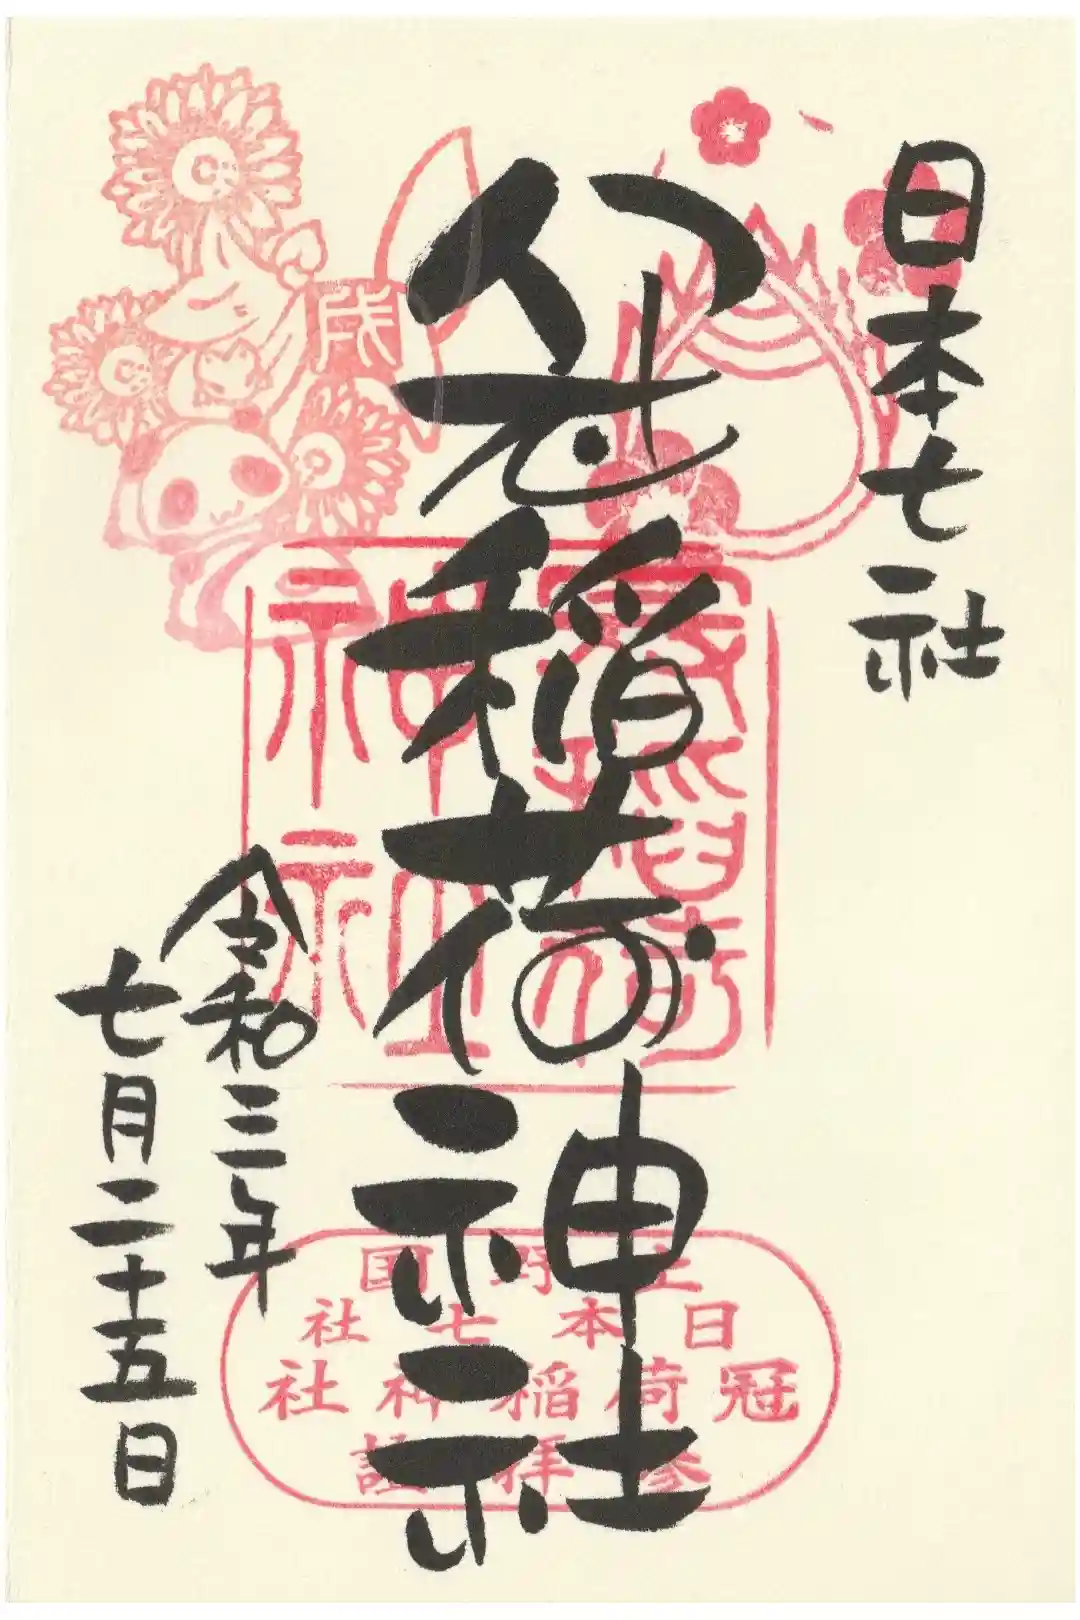 日本七社
冠稲荷神社
令和三年
七月二十五日
上野国
日本七社
冠稲荷神社
参拝證